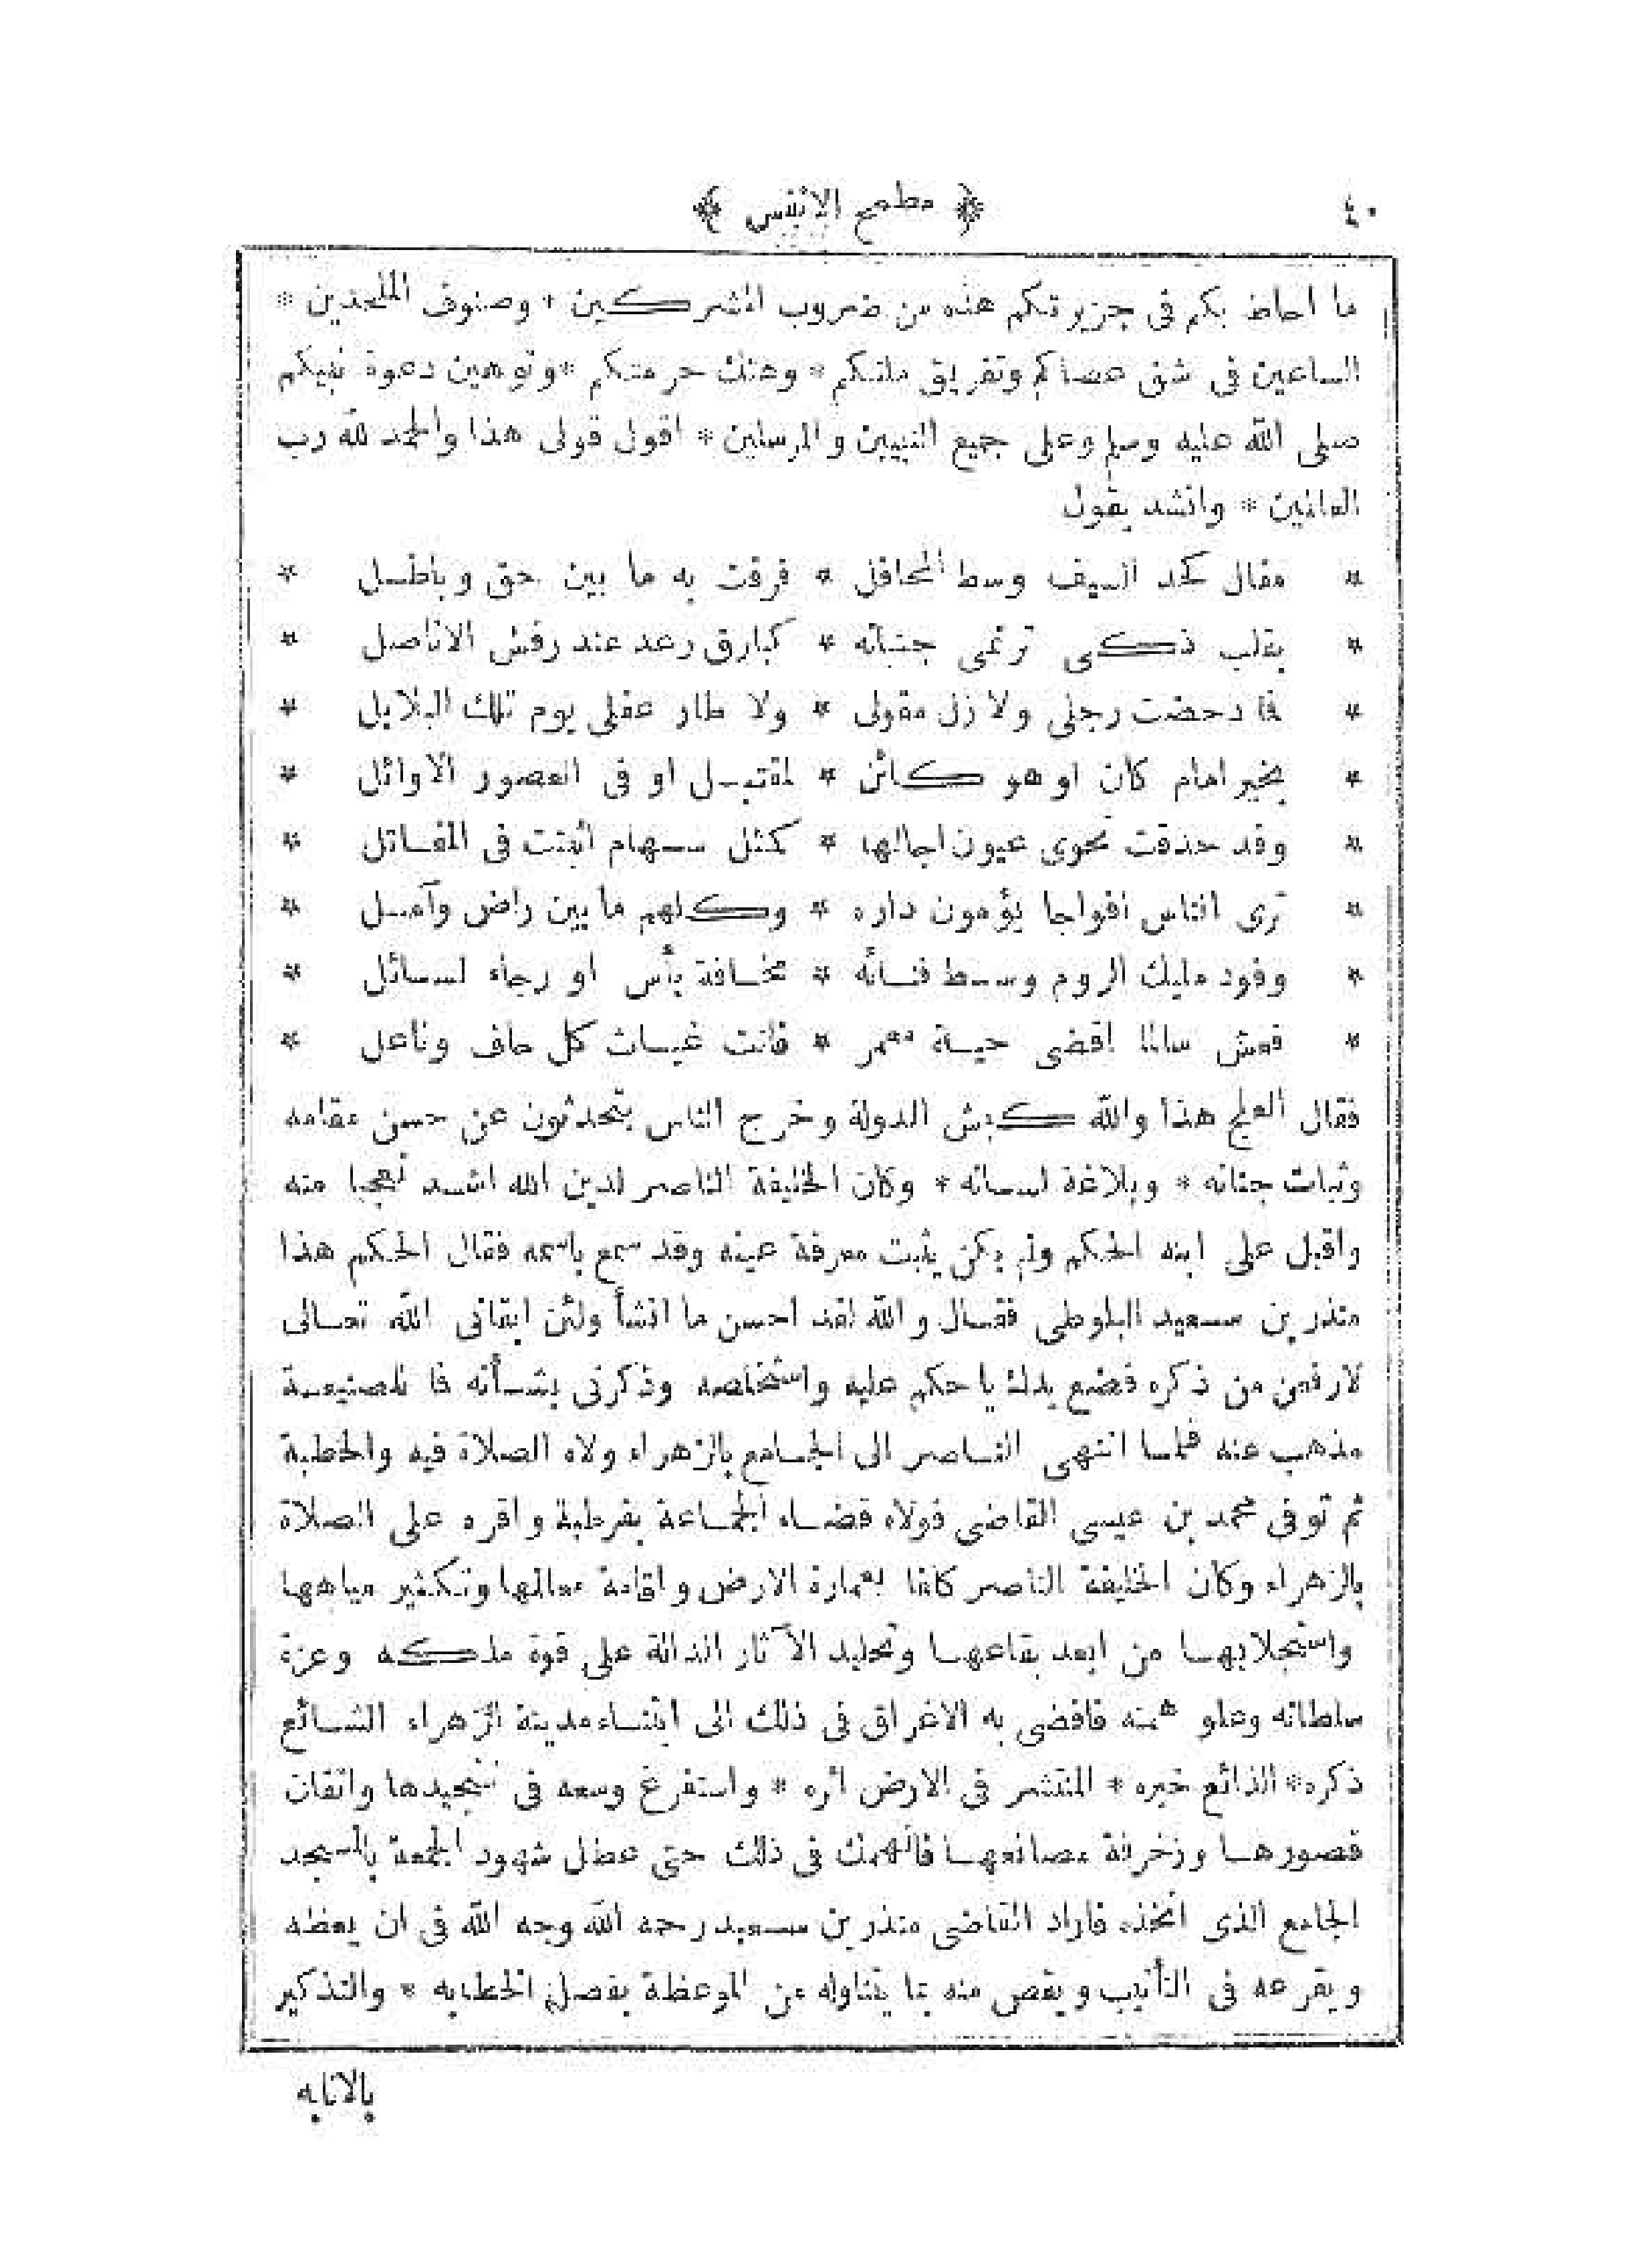 ٤٠
﴿ مطمح الانفس ﴾
ما احاط بكم فى جزيرتكم هذه من ضروب المشركين * وصنوف الملحدين *
الساعين فى شق عصاكم وتفريق ملتكم * وهتك حرمتكم * وتوهين دعوة نبيكم
صلى الله عليه وسلم وعلى جميع النبيين والمرسلين * اقول قولى هذا والحمد لله رب
العالمين * وانشد يقول
* مقال كحد السيف وسط المحافل * فرقت به ما بين حق وباطل *
* بقلب ذكى ترتمى جنباته * كبارق رعد عند رقش الاناصل *
* فما دحضت رجلى ولا زل مقولى * ولا طار عقلى يوم تلك البلابل *
* بخير امام كان او هو كائن * لمقتبل او فى العصور الاوائل *
* وقد حدقت نحوى عيون اجالها * كمثل سهام اثبتت فى المقاتل *
* ترى الناس افواجا يؤمون داره * وكلهم ما بين راض وآمل *
* وفود مليك الروم وسط فنائه * مخافة بأس او رجاء لسائل *
* فعش سالما اقضى حياة معمر * فانت غياث كل حاف وناعل *
فقال العلج هذا والله كبش الدولة وخرج الناس يتحدثون عن حسن مقامه
وثبات جنانه * وبلاغة لسانه * وكان الخليفة الناصر لدين الله اشد تعجبا منه
واقبل على ابنه الحكم ولم يكن يثبت معرفة عينه وقد سمع باسمه فقال الحكم هذا
منذر بن سعيد البلوطى فقال والله لقد احسن ما انشأ ولئن ابقانى الله تعالى
لارفعن من ذكره فضع يدك يا حكم عليه واستخلصه وذكرنى بشأنه فما للصنيعة
مذهب عنه فلما انتهى الناصر الى الجامع بالزهراء ولاه الصلاة فيه والخطبة
ثم توفى محمد بن عيسى القاضى فولاه قضاء الجماعة بقرطبة واقره على الصلاة
بالزهراء وكان الخليفة الناصر كلفا بعمارة الارض واقامة معالمها وتكثير مياهها
واستجلابها من ابعد بقاعها وتخليد الآثار الدالة على قوة ملكه وعزة
سلطانه وعلو همته فافضى به الاغراق فى ذلك الى ابتناء مدينة الزهراء الشائع
ذكره * الذائع خبره * المنتشر فى الارض اثره * واستفرغ وسعه فى تنجيدها واتقان
قصورها وزخرفة مصانعها فانهمك فى ذلك حتى عطل شهود الجمعة بالمسجد
الجامع الذى اتخذه فاراد القاضى منذر بن سعيد رحمه الله وجه الله فى ان يعظه
ويقرعه فى التأنيب ويقص منه بما يتناوله من الموعظة بفصل الخطابه * والتذكير
بالانابه